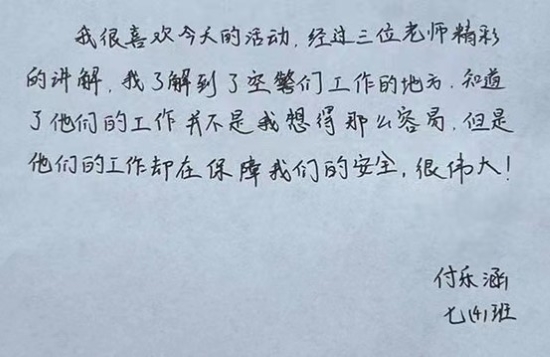 我很喜欢今天的活动，经过三位老师精彩
的讲解，我了解到了空警们工作的地方，知道
了他们的工作并不是我想得那么容易，但是
他们的工作却在保障我们的安全，很伟大！
付乐涵
七(4)班